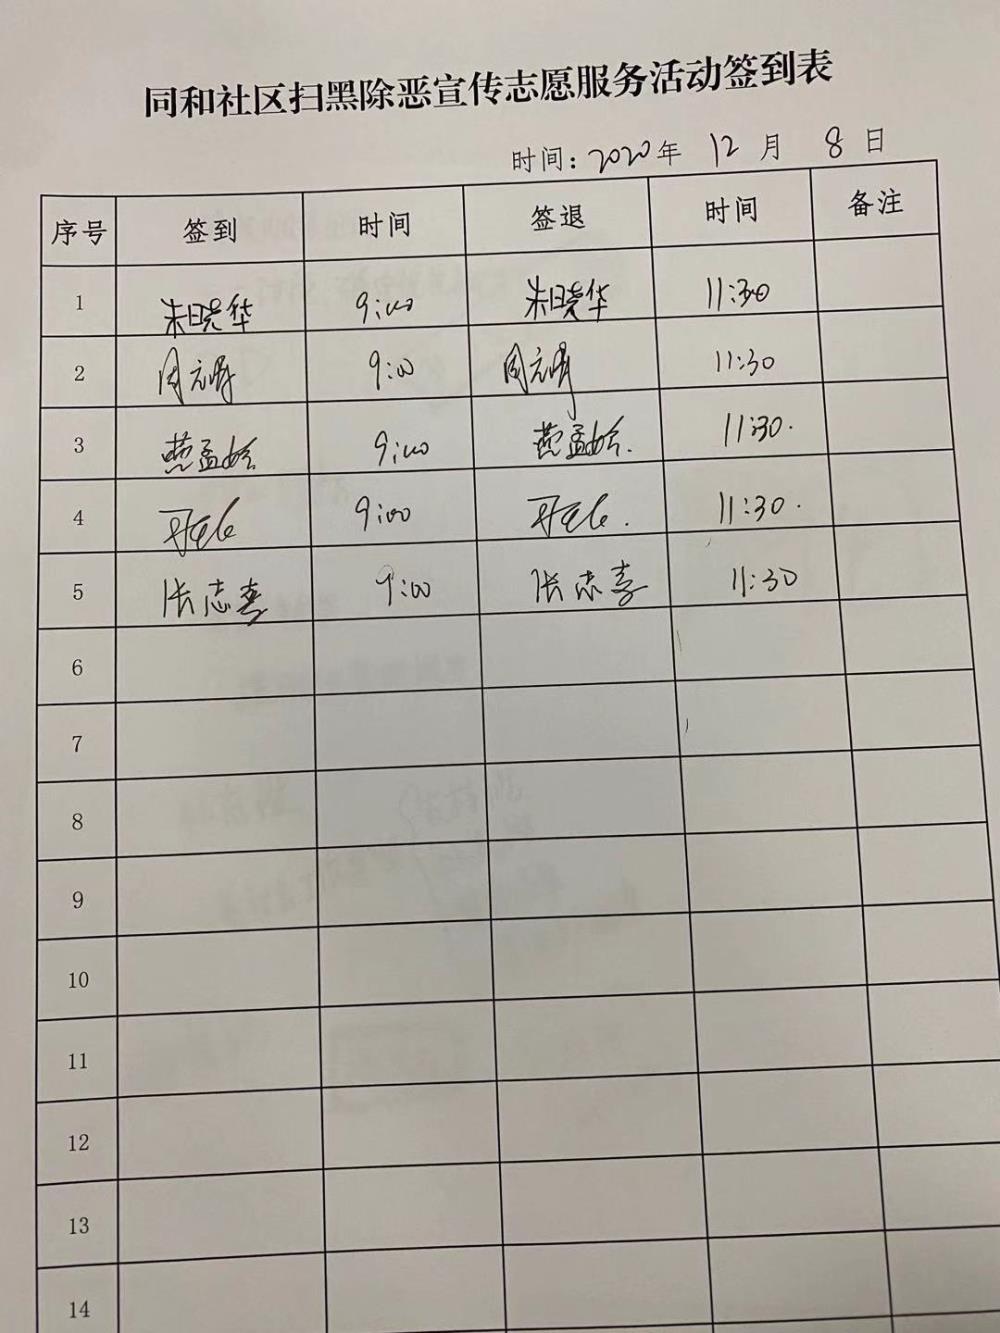 同和社区扫黑除恶宣传志愿服务活动签到表
时间：2020年 12 月 8 日
序号 签到 时间 签退 时间 备注
1 朱晓华 9:00 朱晓华 11:30
2 周元 9:00 周元 11:30
3 孟 9:00 孟 11:30.
4 9:00 11:30.
5 张志喜 9:00 张志喜 11:30
6
7
8
9
10
11
12
13
14